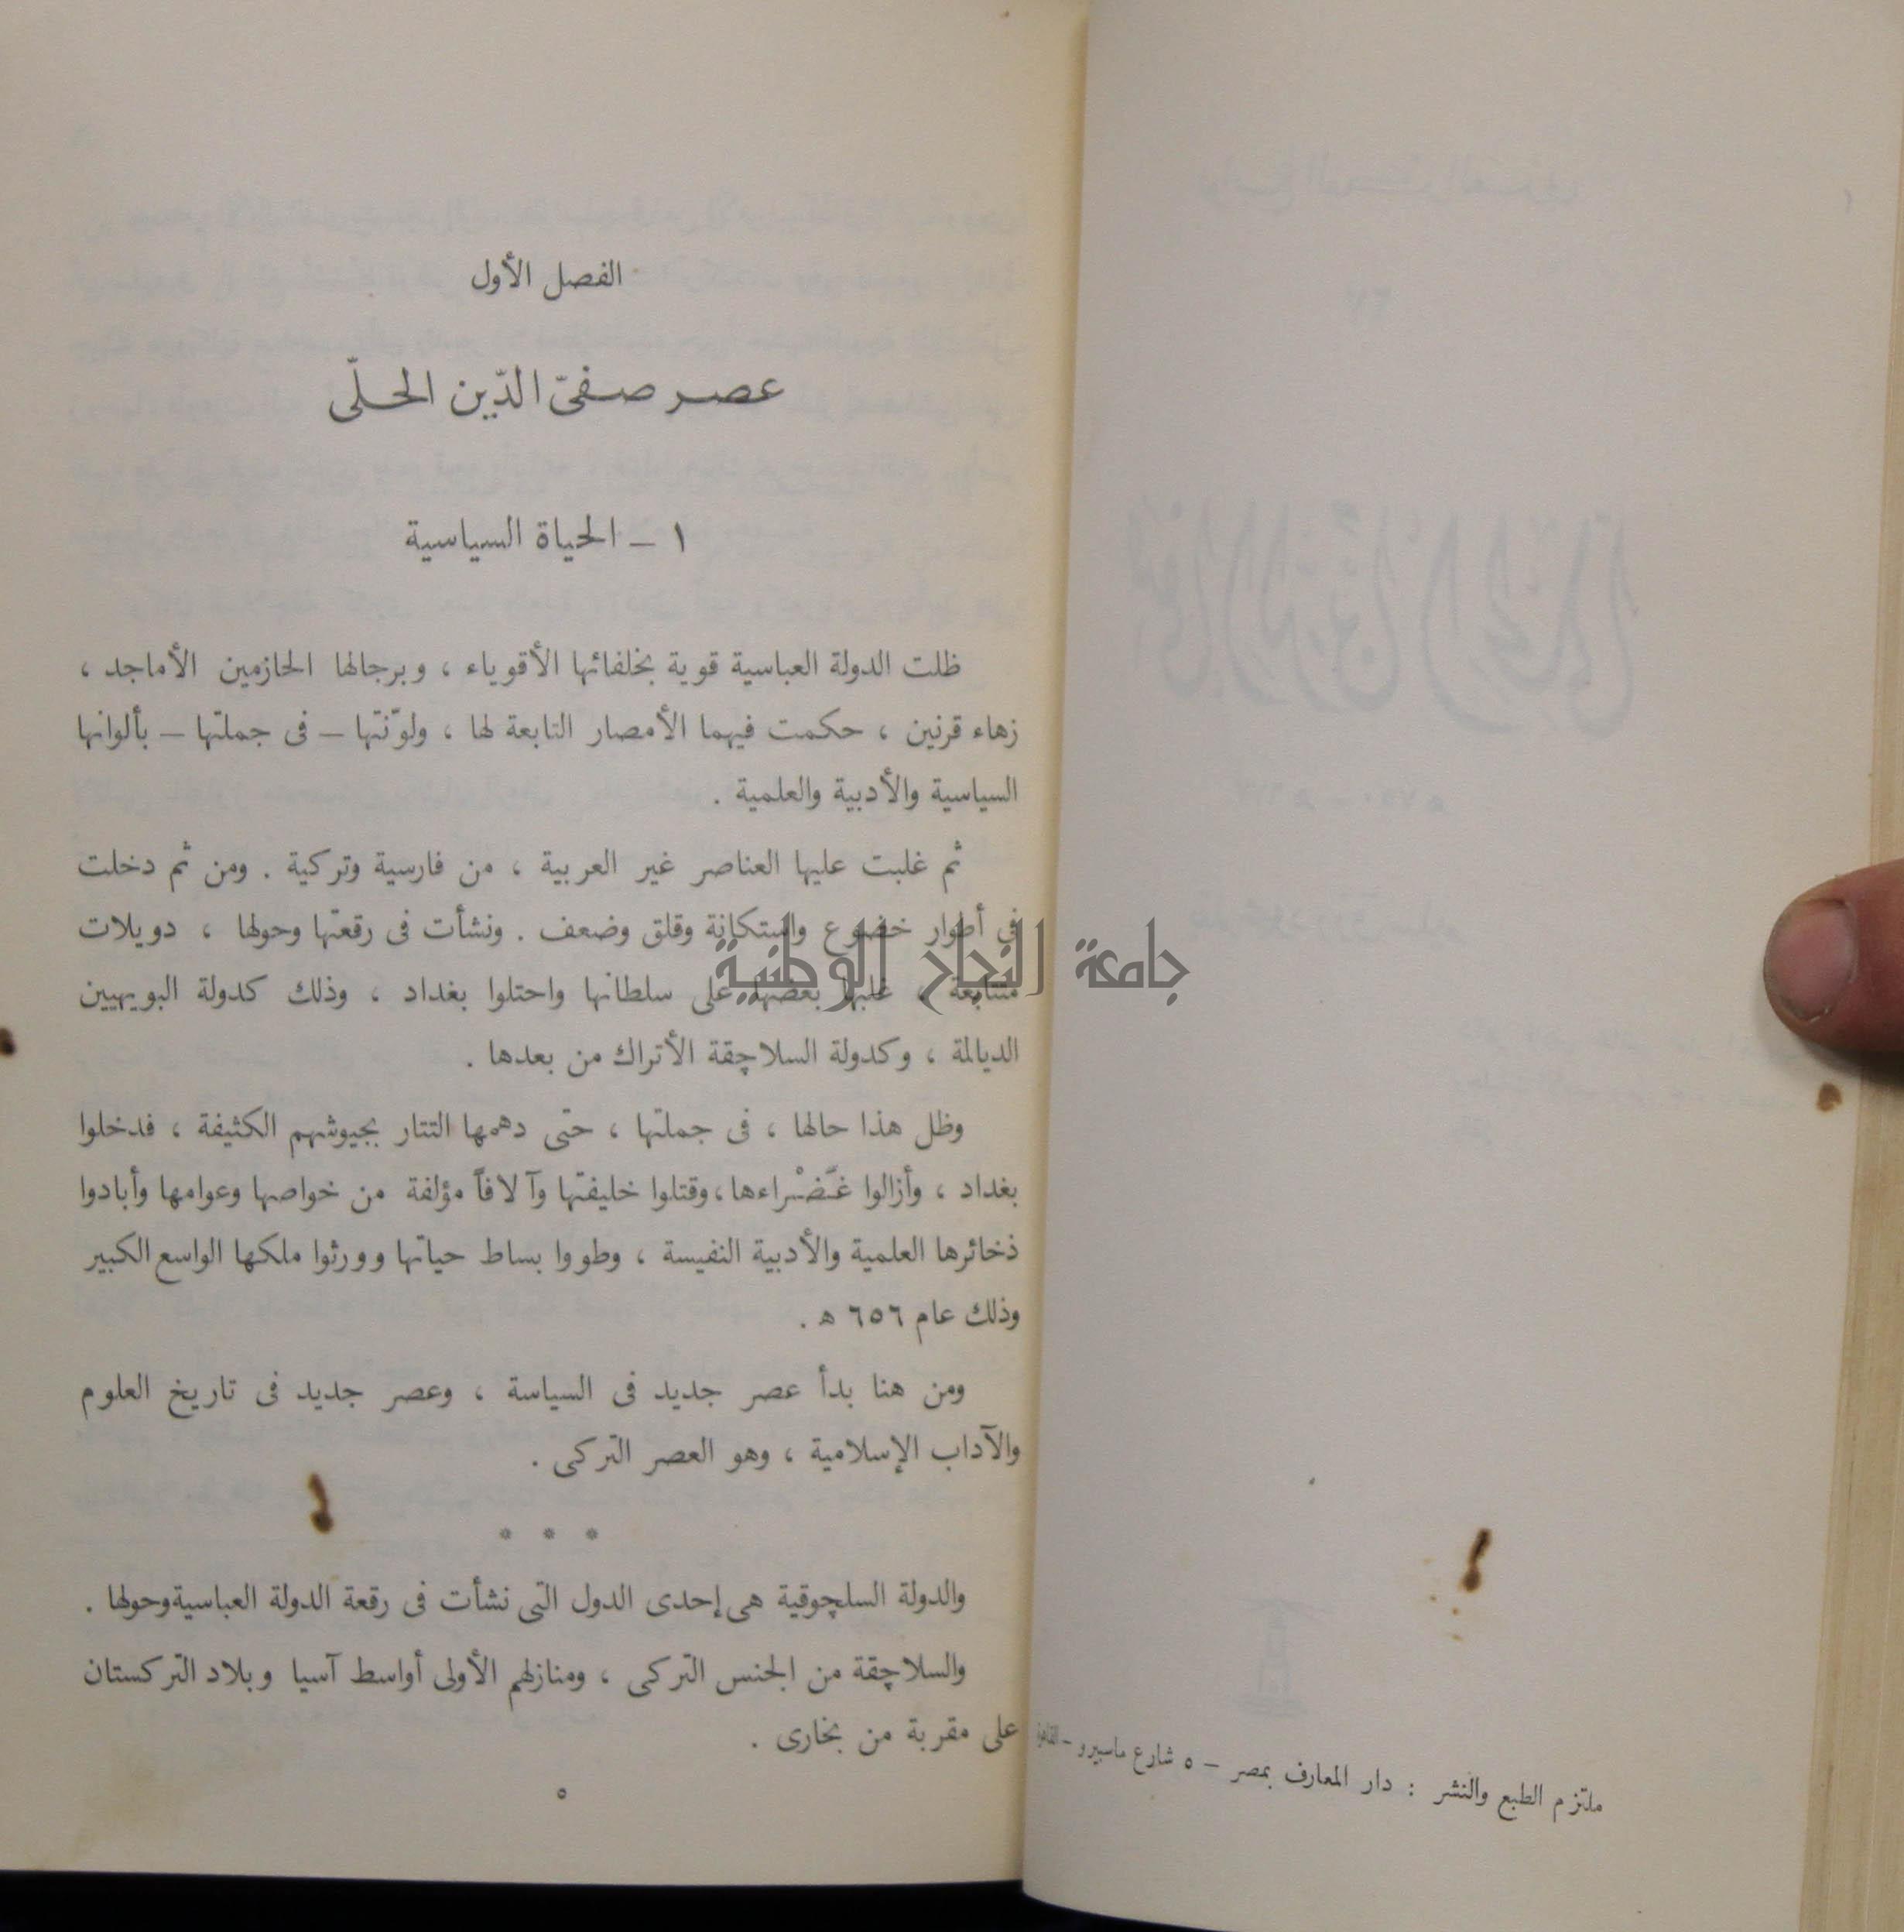 ملتزم الطبع والنشر : دار المعارف بمصر – ٥ شارع ماسبيرو – القاهرة
الفصل الأول
عصر صفىّ الدّين الحلّى
١ – الحياة السياسية
ظلت الدولة العباسية قوية بخلفائها الأقوياء ، وبرجالها الحازمين الأماجد ،
زهاء قرنين ، حكمت فيهما الأمصار التابعة لها ، ولوّنتها – فى جملتها – بألوانها
السياسية والأدبية والعلمية .
ثم غلبت عليها العناصر غير العربية ، من فارسية وتركية . ومن ثم دخلت
فى أطوار خضوع واستكانة وقلق وضعف . ونشأت فى رقعتها وحولها ، دويلات
متتابعة ، غلبها بعضها على سلطانها واحتلوا بغداد ، وذلك كدولة البويهيين
الديالمة ، وكدولة السلاچقة الأتراك من بعدها .
وظل هذا حالها ، فى جملتها ، حتى دهمها التتار بجيوشهم الكثيفة ، فدخلوا
بغداد ، وأزالوا غَضْراءها، وقتلوا خليفتها وآلافاً مؤلفة من خواصها وعوامها وأبادوا
ذخائرها العلمية والأدبية النفيسة ، وطووا بساط حياتها وورثوا ملكها الواسع الكبير
وذلك عام ٦٥٦ ه .
ومن هنا بدأ عصر جديد فى السياسة ، وعصر جديد فى تاريخ العلوم
والآداب الإسلامية ، وهو العصر التركى .
* * *
والدولة السلچوقية هى إحدى الدول التى نشأت فى رقعة الدولة العباسية وحولها .
والسلاچقة من الجنس التركى ، ومنازلهم الأولى أواسط آسيا وبلاد التركستان
على مقربة من بخارى .
٥
جامعة النجاح الوطنية